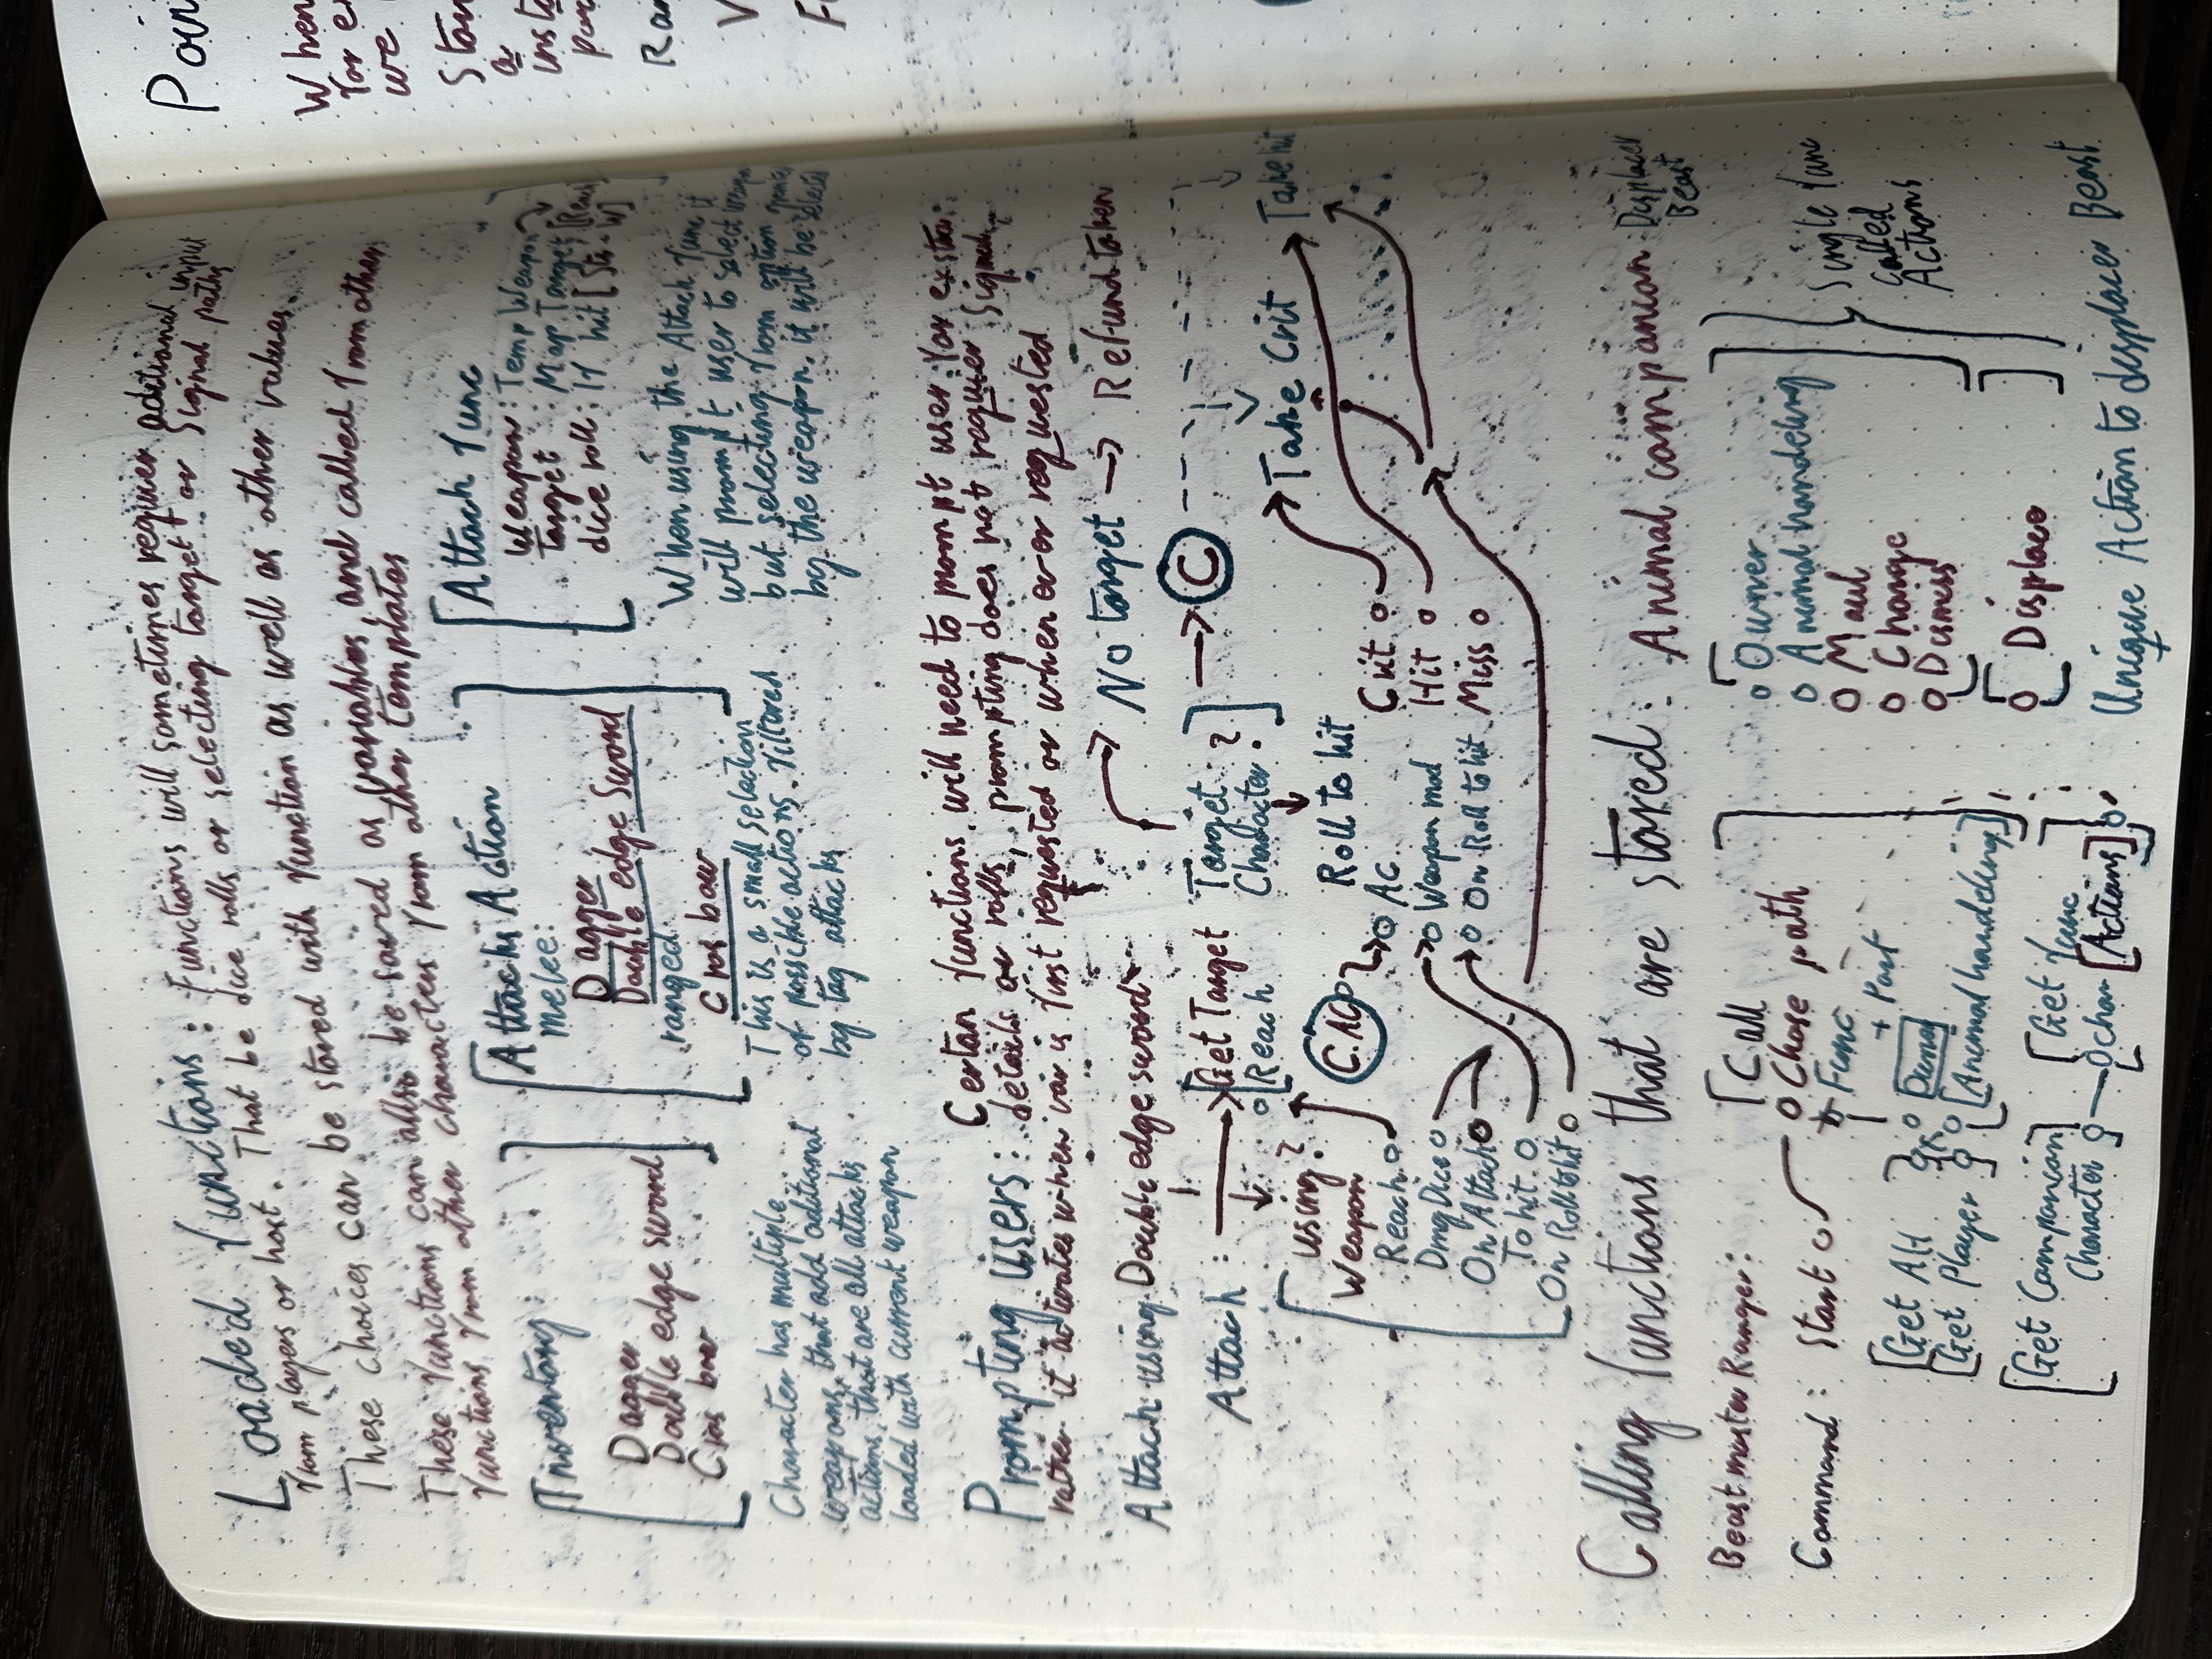 Loaded functions: Functions will sometimes requier aditional input
from players or host. That be dice rolls or selecting target or Signal paths
These choices can be stored with function as well as other values.
These functions can allso be saved as variables, and called from other
functions from other characters from other templates
Inventory:
Dagger
Double edge sword
Cros bow
Character has multiple
weapons, that add aditional
actions, that are all attacks
loaded with current weapon
Attacks Action
melee:
Dagger
Double edge Sword
ranged:
Cros bow
This is a small selection
of possible actions. filtered
by tag attacks
Attack func
Weapon: Temp Weapon
Target : Map Target [Reach]
dice roll: If hit [Str + W]
When using the Attack func it
will prompt user to select weapon
but selecting from option
by the weapon, it will be selected
Prompting users: Certan functions will need to prompt user for exstra
details or rolls, prompting does not requier Signal,
rather it activates when var is first requested or when ever requested
Attack using Double edge sword
No target → Refund token
Attack :
Get Target Target ?
Reach Character
C
Take Crit
Take hit
using?
Weapon
Reach
Dmg Dice
On Attack
To hit
On Roll to hit
C.AC
Roll to hit
AC
Weapon mod
On Roll to hit
Crit
Hit
Miss
Calling functions that are stored: Animal companion Displacer
Beast
Beast master Ranger:
Command: Start
Call
Chose path
Func
+ Port
Owner
[Animal handeling]
[Get AH
[Get Player
[Get Companion]
Character
[Get func
char [Actions]
Owner
Animal handeling
Maul
Charge
Dismiss
Displace
Single func
called
Actions
Unique Action to displacer Beast
Poin
When
for ex
we
Stor
a
inst
par
Ran
V
F